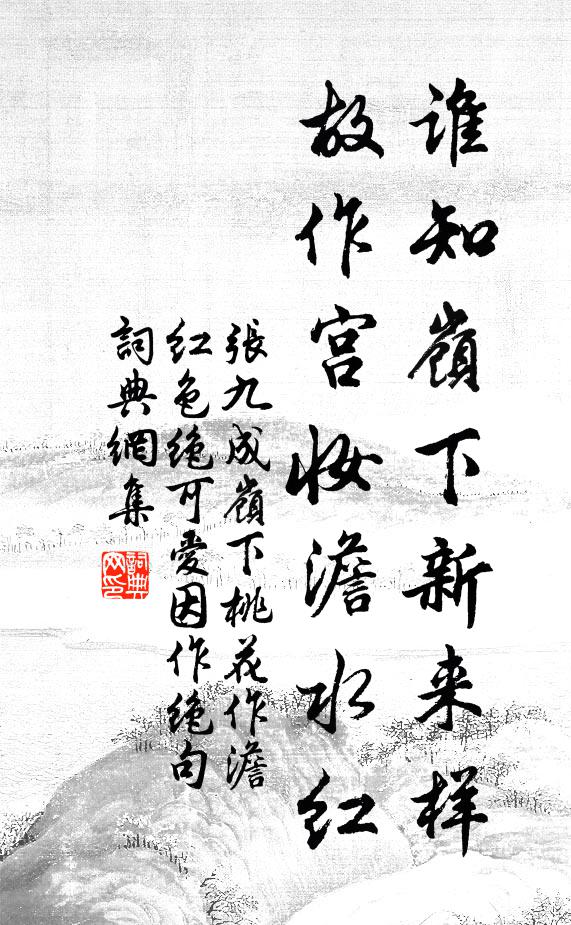 谁知嶺下新来样
故作宫妆澹水红
張九成嶺下桃花作澹
红色绝可愛因作绝句
詞典網集
詞典
网印